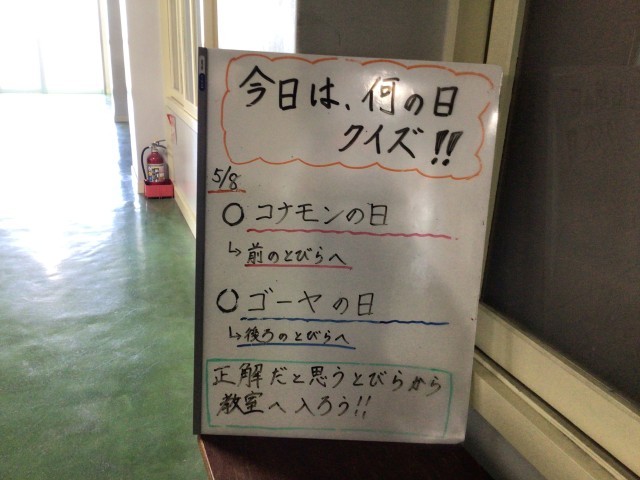 今日は、何の日
クイズ!!
5/8
○ コナモンの日
↳ 前のとびらへ
○ ゴーヤの日
↳ 後ろのとびらへ
正解だと思うとびらから
教室へ入ろう!!